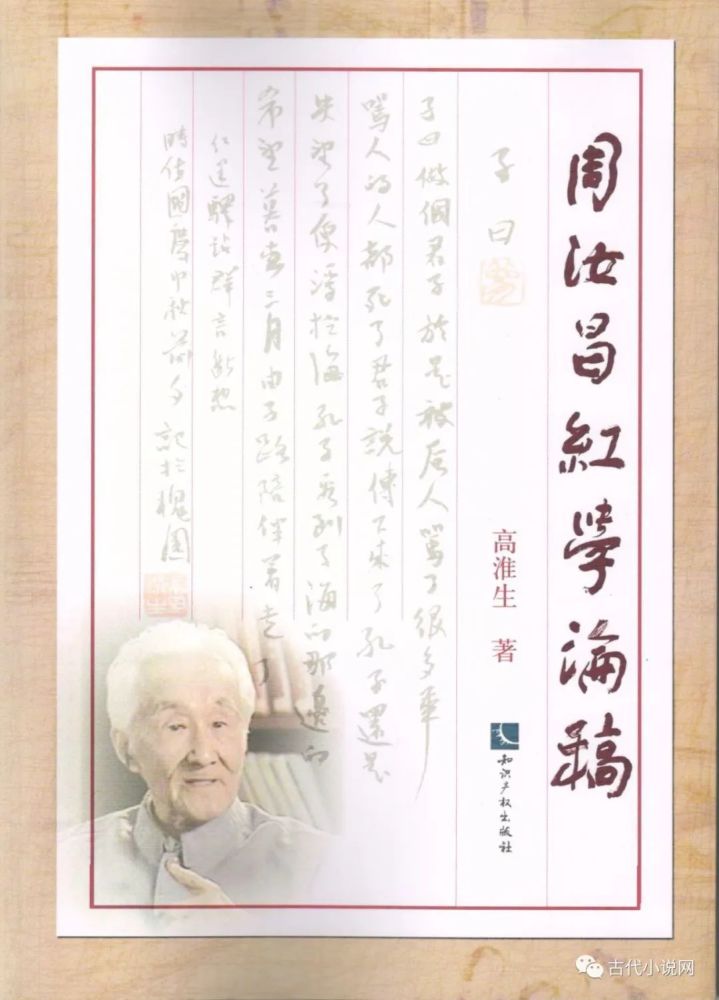 周汝昌紅學論稿
高淮生 著
知识产权出版社
子曰
子曰做個君子於是被后人罵了很多年
罵人的人都死了君子說傳下來了孔子還是
失望了便浮於海孔子看到了海的那邊的
希望暮春三月由子路陪伴着走了
仁道驛站群言斷想
時值國慶中秋前夕記於槐園
古代小说网